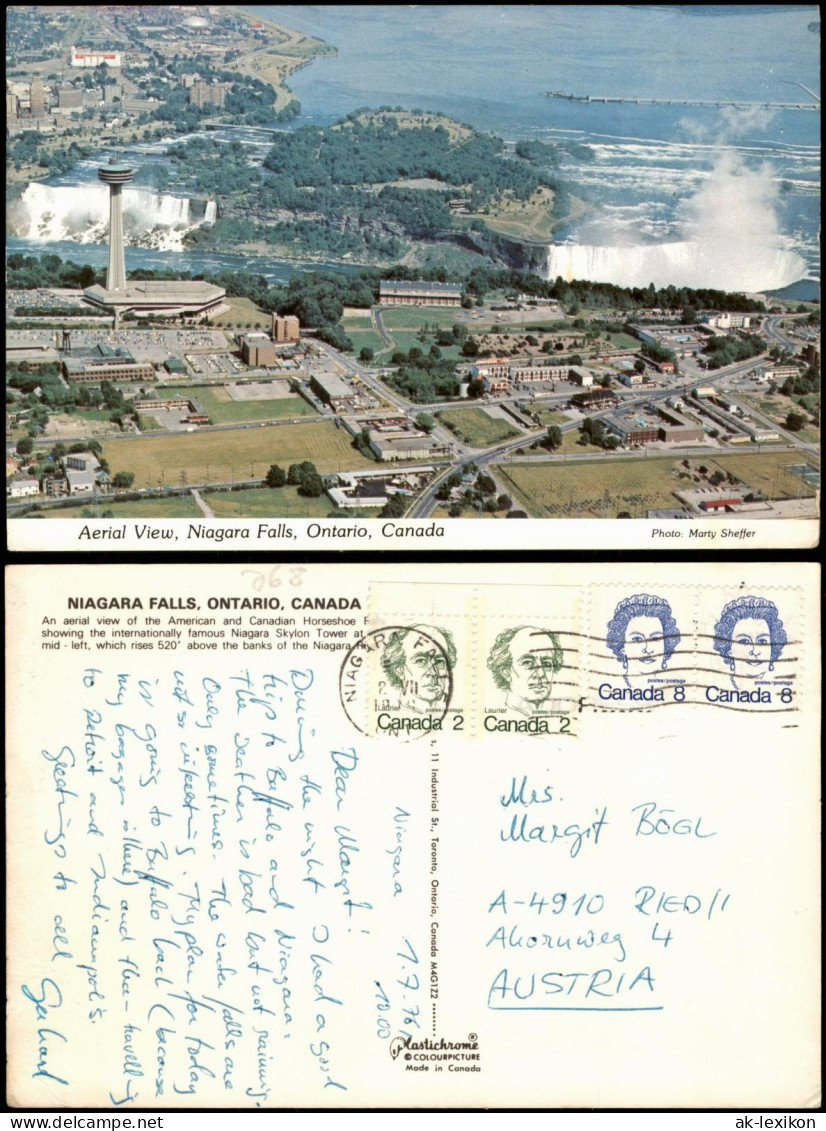 Aerial View, Niagara Falls, Ontario, Canada
Photo: Marty Sheffer
268
NIAGARA FALLS, ONTARIO, CANADA
An aerial view of the American and Canadian Horseshoe F
showing the internationally famous Niagara Skylon Tower at
mid - left, which rises 520' above the banks of the Niagara
NIAGARA FALLS
VII
ONT
Laurier
postes/postage
Canada 2
Laurier
postes/postage
Canada 2
postes/postage
Canada 8
postes/postage
Canada 8
Niagara 1.7.76
18.00
Dear Margit!
During the night I had a good
trip to Buffalo and Niagara.
The weather is bad but not raining.
Only sometimes. The water falls are
not so inpecting. My plan for today
is going to Buffalo back (because
my bagages is there) and then travelling
to Detroit and Indianapolis.
Greetings to all
Gerhard
, 11 Industrial St., Toronto, Ontario, Canada M4G1Z2
Plastichrome
© COLOURPICTURE
Made in Canada
Mrs.
Margit BÖGL
A-4910 RIED/I
Ahornweg 4
AUSTRIA
www.delcampe.net
ak-lexikon
ak-lexikon.com